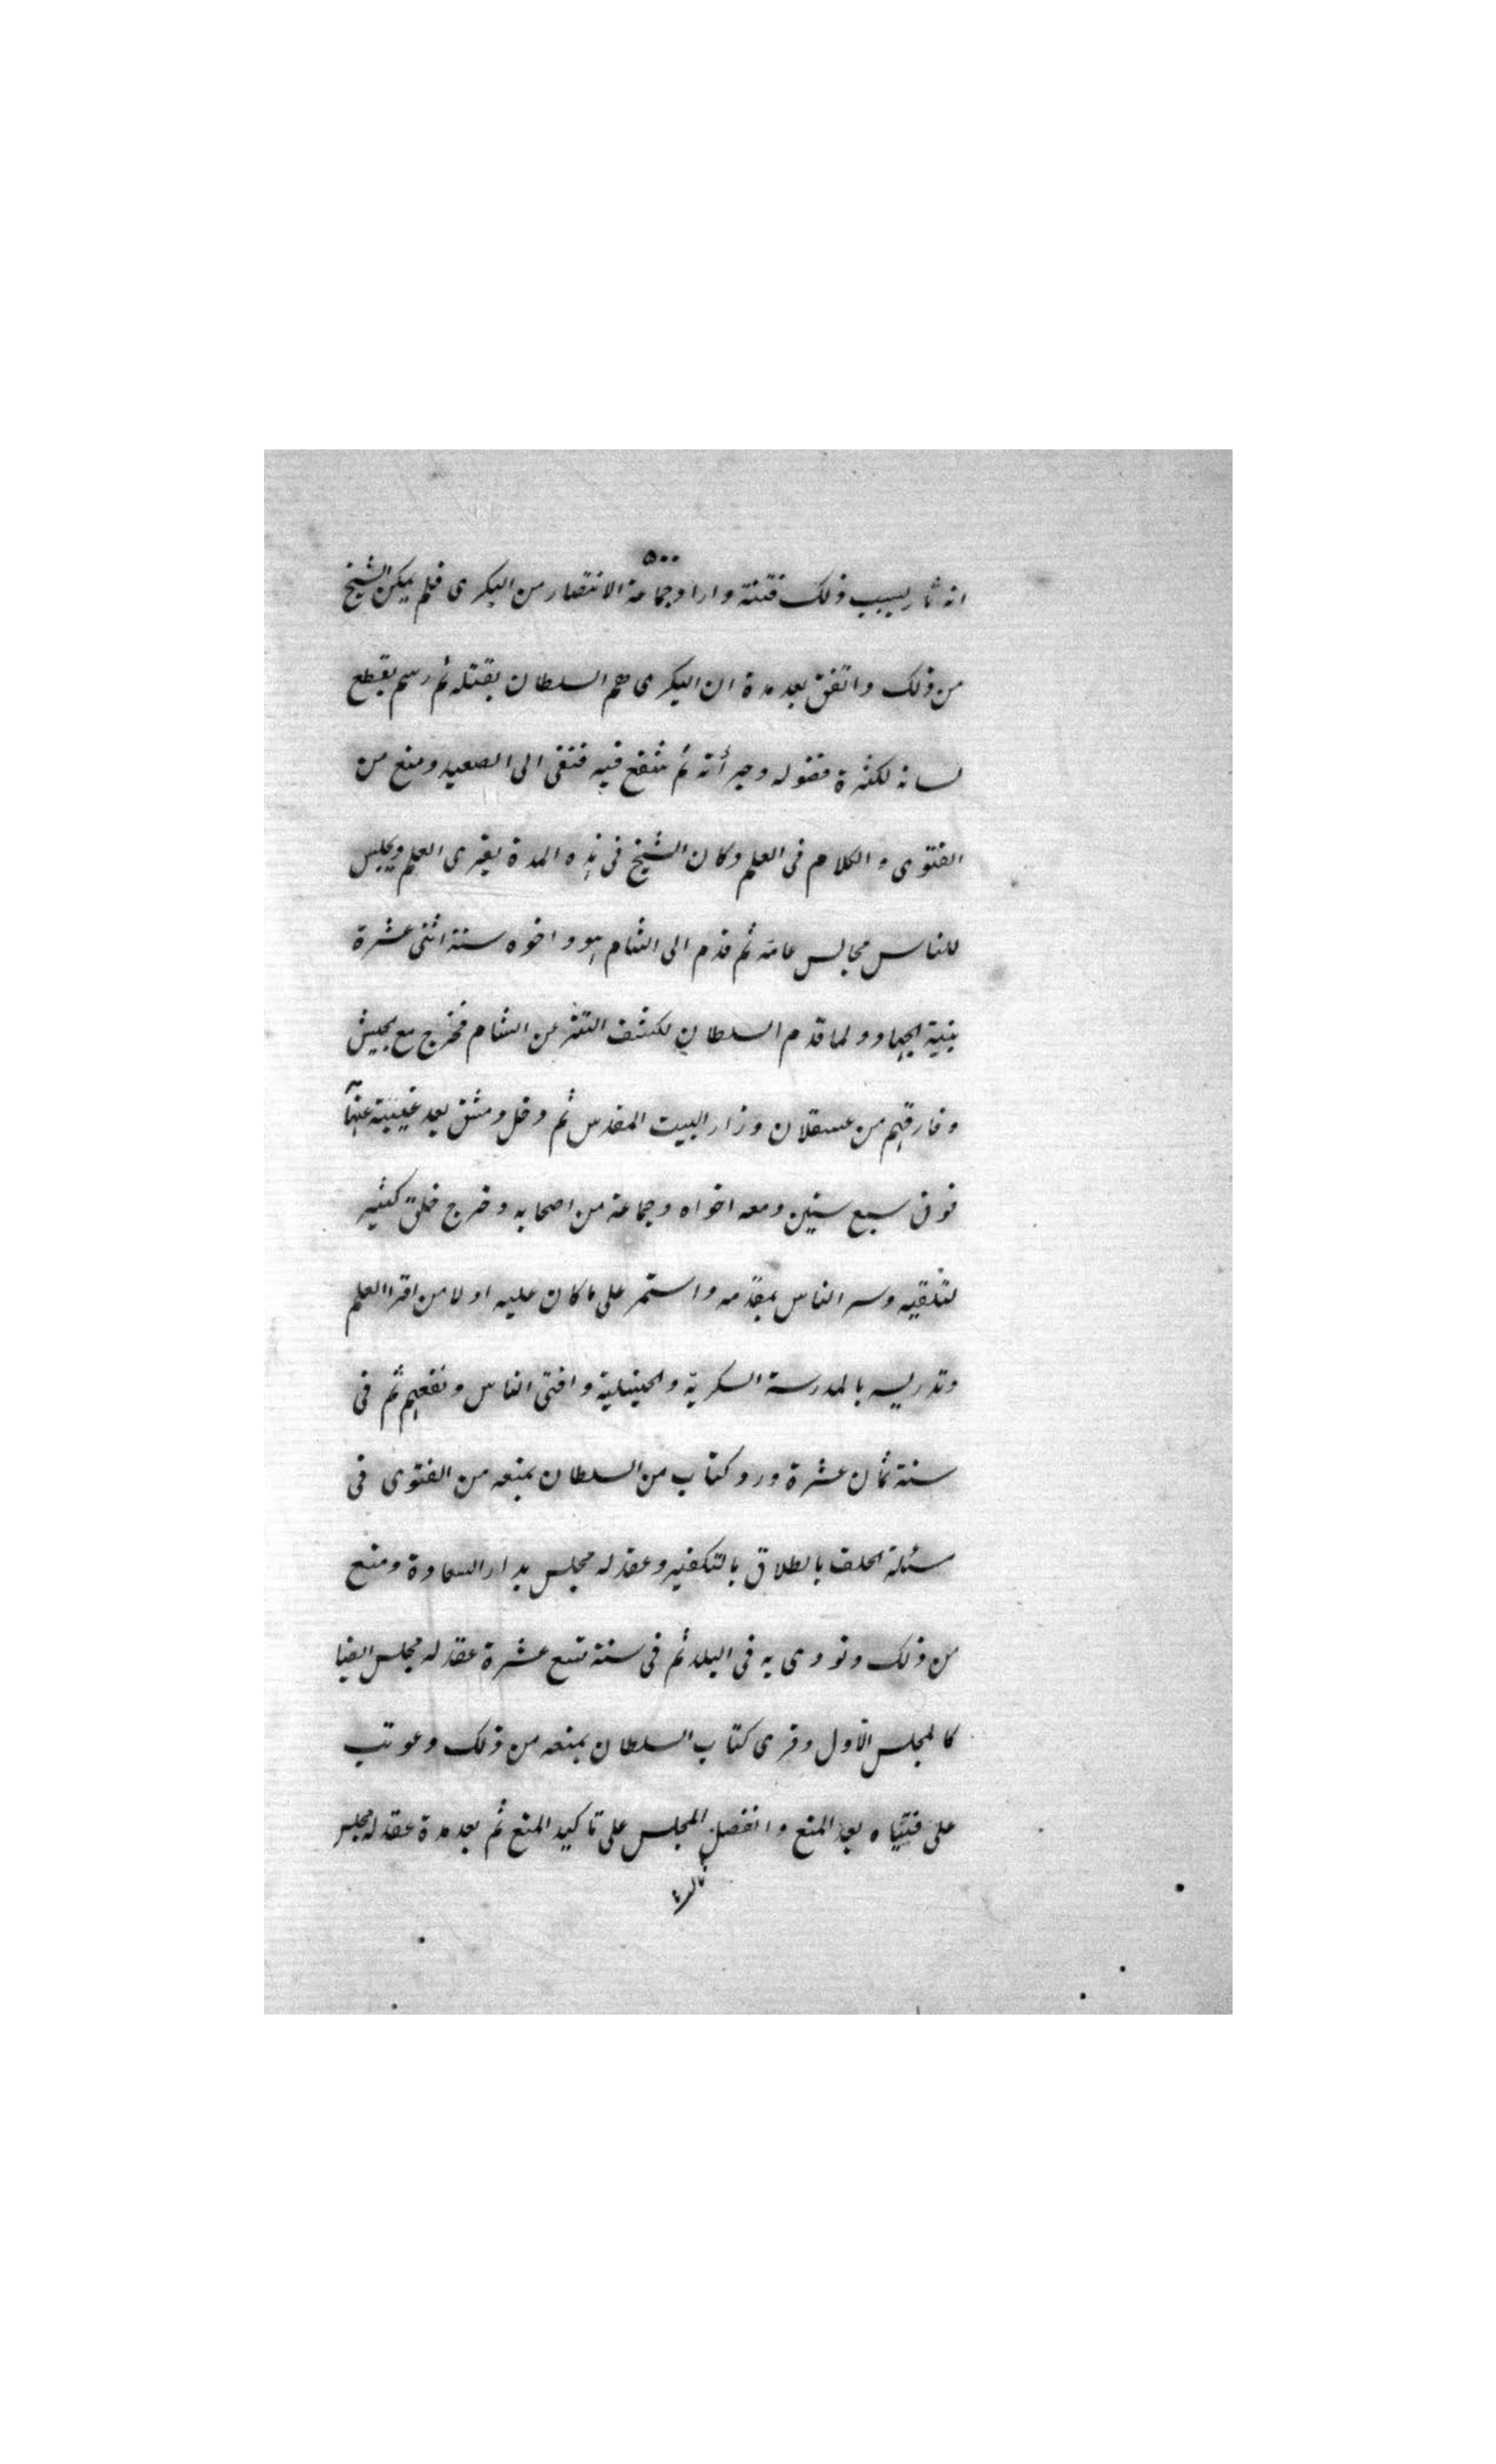 ٥٠٠
انه ثار بسبب ذلك فتنة واراد جماعة الانتصار من البكرى فلم يمكن الشيخ
من ذلك واتفق بعد مدة ان البكرى هم السلطان بقتله ثم رسم بقطع
لسانه لكثرة فضوله وجرأته ثم شفع فيه فنفى الى الصعيد ومنع من
الفتوى والكلام فى العلم وكان الشيخ فى هذه المدة يقرى العلم ويجلس
للناس مجالس عامة ثم قدم الى الشام هو واخوه سنة اثنى عشرة
بنية الجهاد ولما قدم السلطان لكشف التتر عن الشام فخرج مع الجيش
وفارقهم من عسقلان وزار البيت المقدس ثم دخل دمشق بعد غيبته عنها
فوق سبع سنين ومعه اخواه وجماعة من اصحابه وخرج خلق كثير
لتلقيه وسر الناس بمقدمه واستمر على ما كان عليه اولا من اقرا العلم
وتدريسه بالمدرسة السكرية والحنبلية وافتى الناس ونفعهم ثم فى
سنة ثمان عشرة ورد كتاب من السلطان بمنعه من الفتوى فى
مسئلة الحلف بالطلاق بالتكفير وعقد له مجلس بدار السعادة ومنع
من ذلك ونودى به فى البلد ثم فى سنة تسع عشرة عقد له مجلس ايضا
كالمجلس الاول وقرى كتاب السلطان بمنعه من ذلك وعوتب
على فتياه بعد المنع وانفصل المجلس على تاكيد المنع ثم بعد مدة عقد له مجلس
ثالث